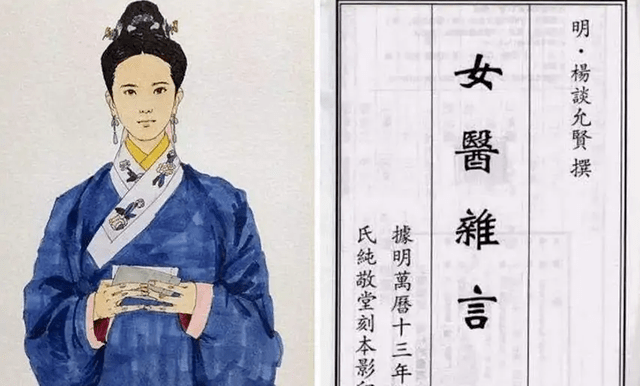 明·楊談允賢 撰
女醫雜言
據明萬曆十三年
氏純敬堂刻本影印